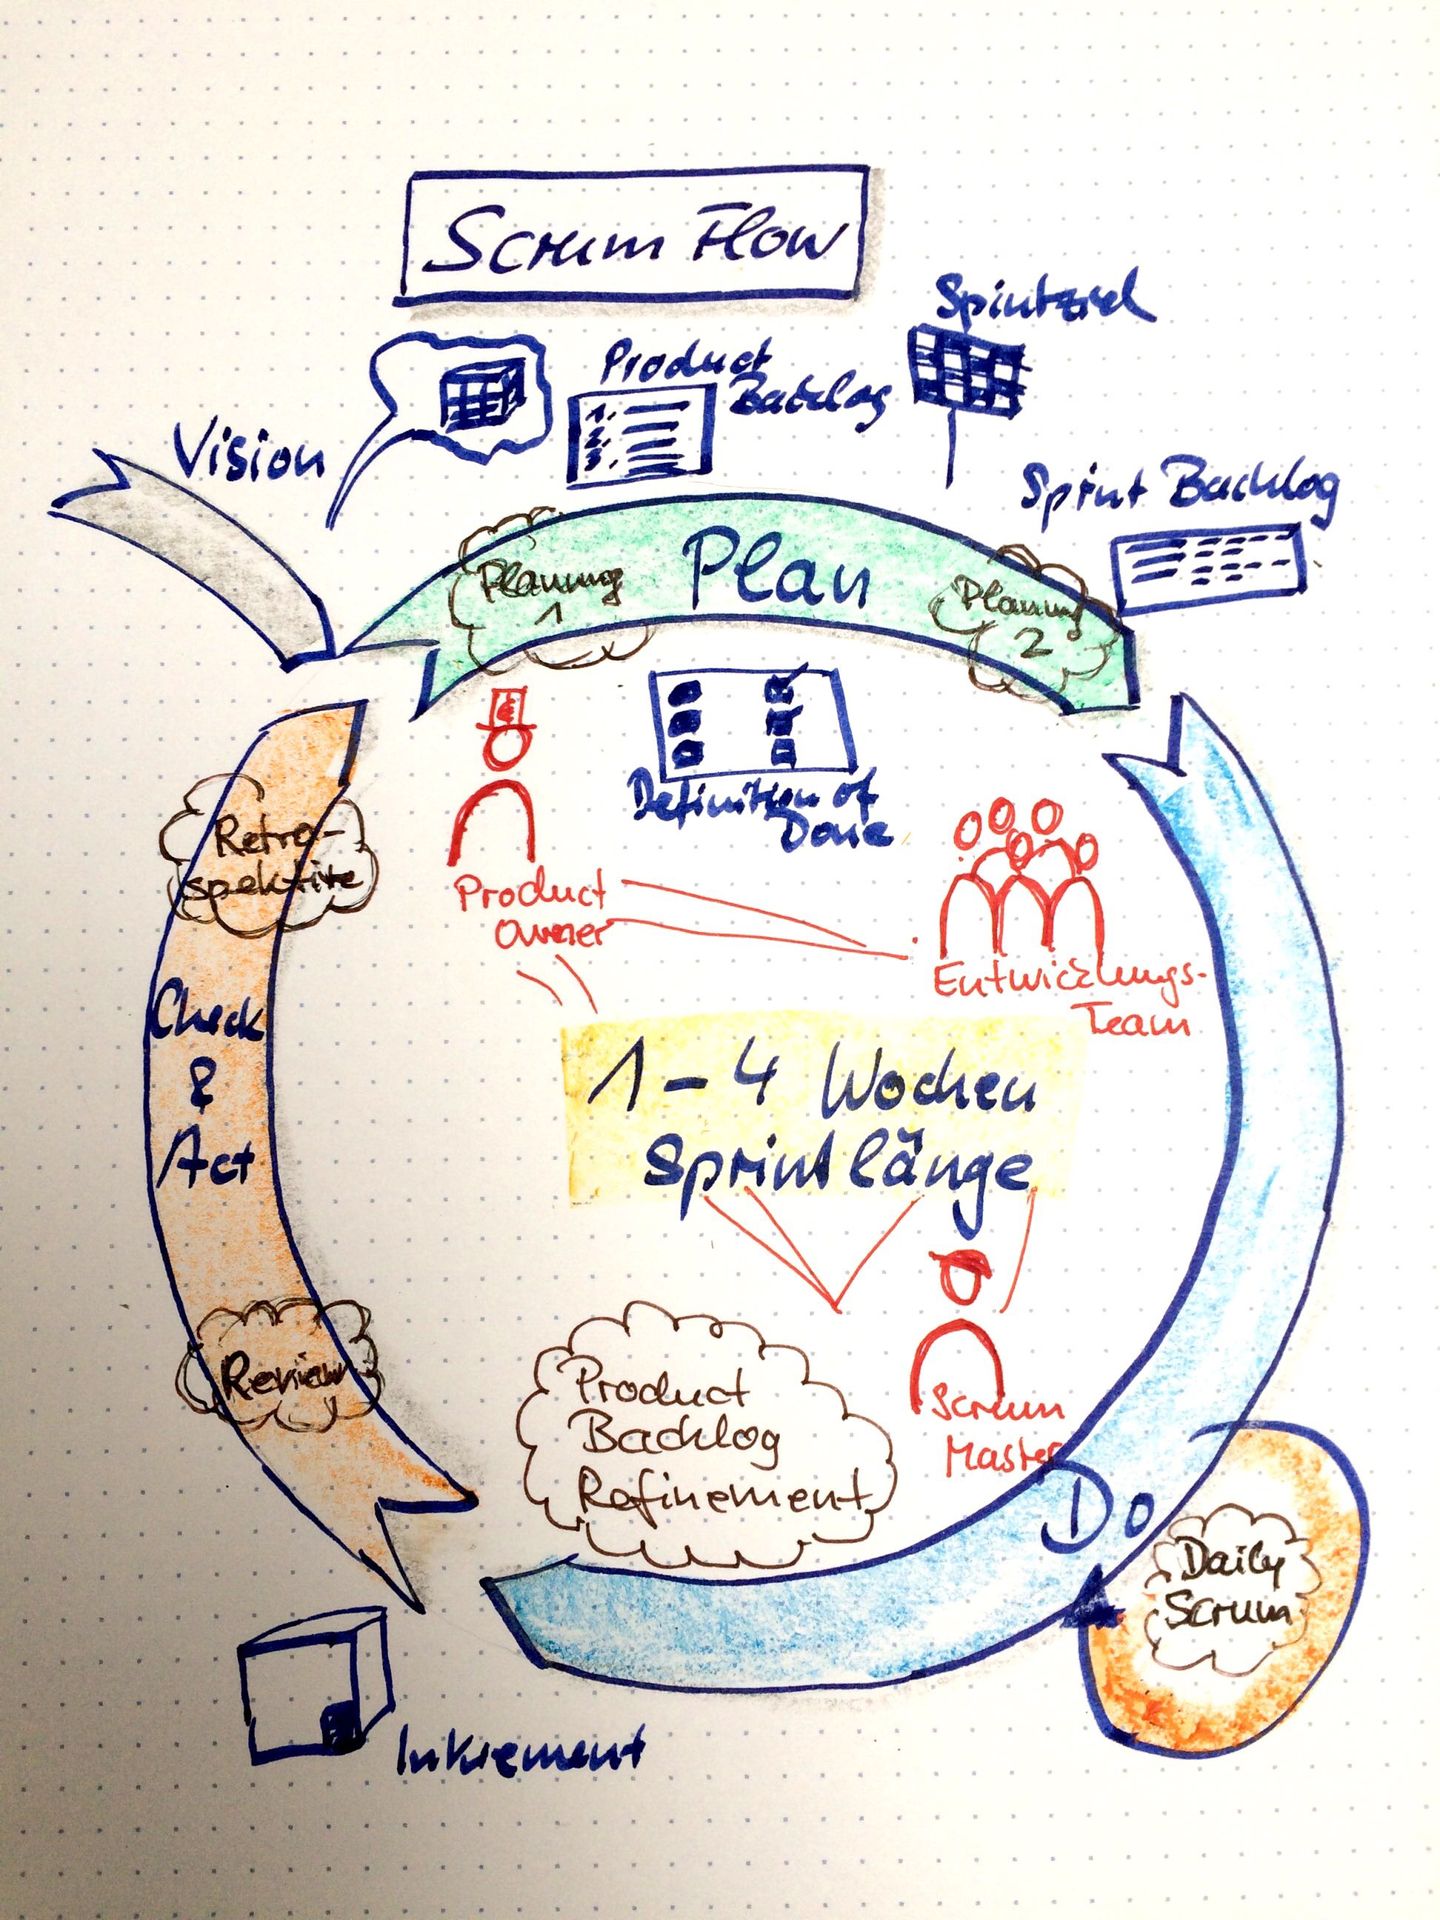 Scrum Flow
Spintziel
Vision
Product
Backlog
1.
2.
3.
Sprint Backlog
Planung
1
Plan
Planung
2
Definition of
Done
Retro-
spektive
Product
Owner
Entwicklungs-
Team
Check
&
Act
1-4 Wochen
Sprintlänge
Review
Product
Backlog
Refinement
Scrum
Master
Do
Daily
Scrum
Inkrement